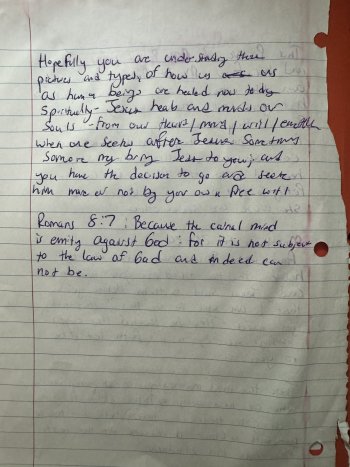 Hopefully you are understanding these
pictures and types, of how us as
as human beings are healed now today
Spiritually - Jesus heals and mends our
Souls - from our heart / mind / will / emotion
when one seeks after Jesus. Sometimes
Someone may bring Jesus to you; and
you have the decision to go and seek
him more or not by your own free will
Romans 8:7 : Because the carnal mind
is emity against God : for it is not subject
to the law of God and indeed can
not be.